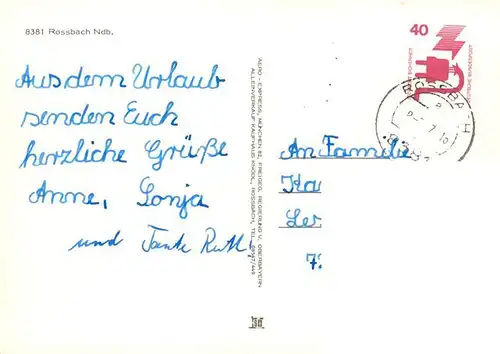 8381 Rossbach Ndb.
Aus dem Urlaub
senden Euch
herzliche Grüße
Anne, Sonja
und Tante Ruth!
AERO-EXPRESS, MÜNCHEN 82, FREIGEG. REGIERUNG V. OBERBAYERN
ALLEINVERKAUF KAUFHAUS KNÖDL, ROSSBACH, TEL.
40
DEUTSCHE BUNDESPOST
ROSSBACH
An Familie